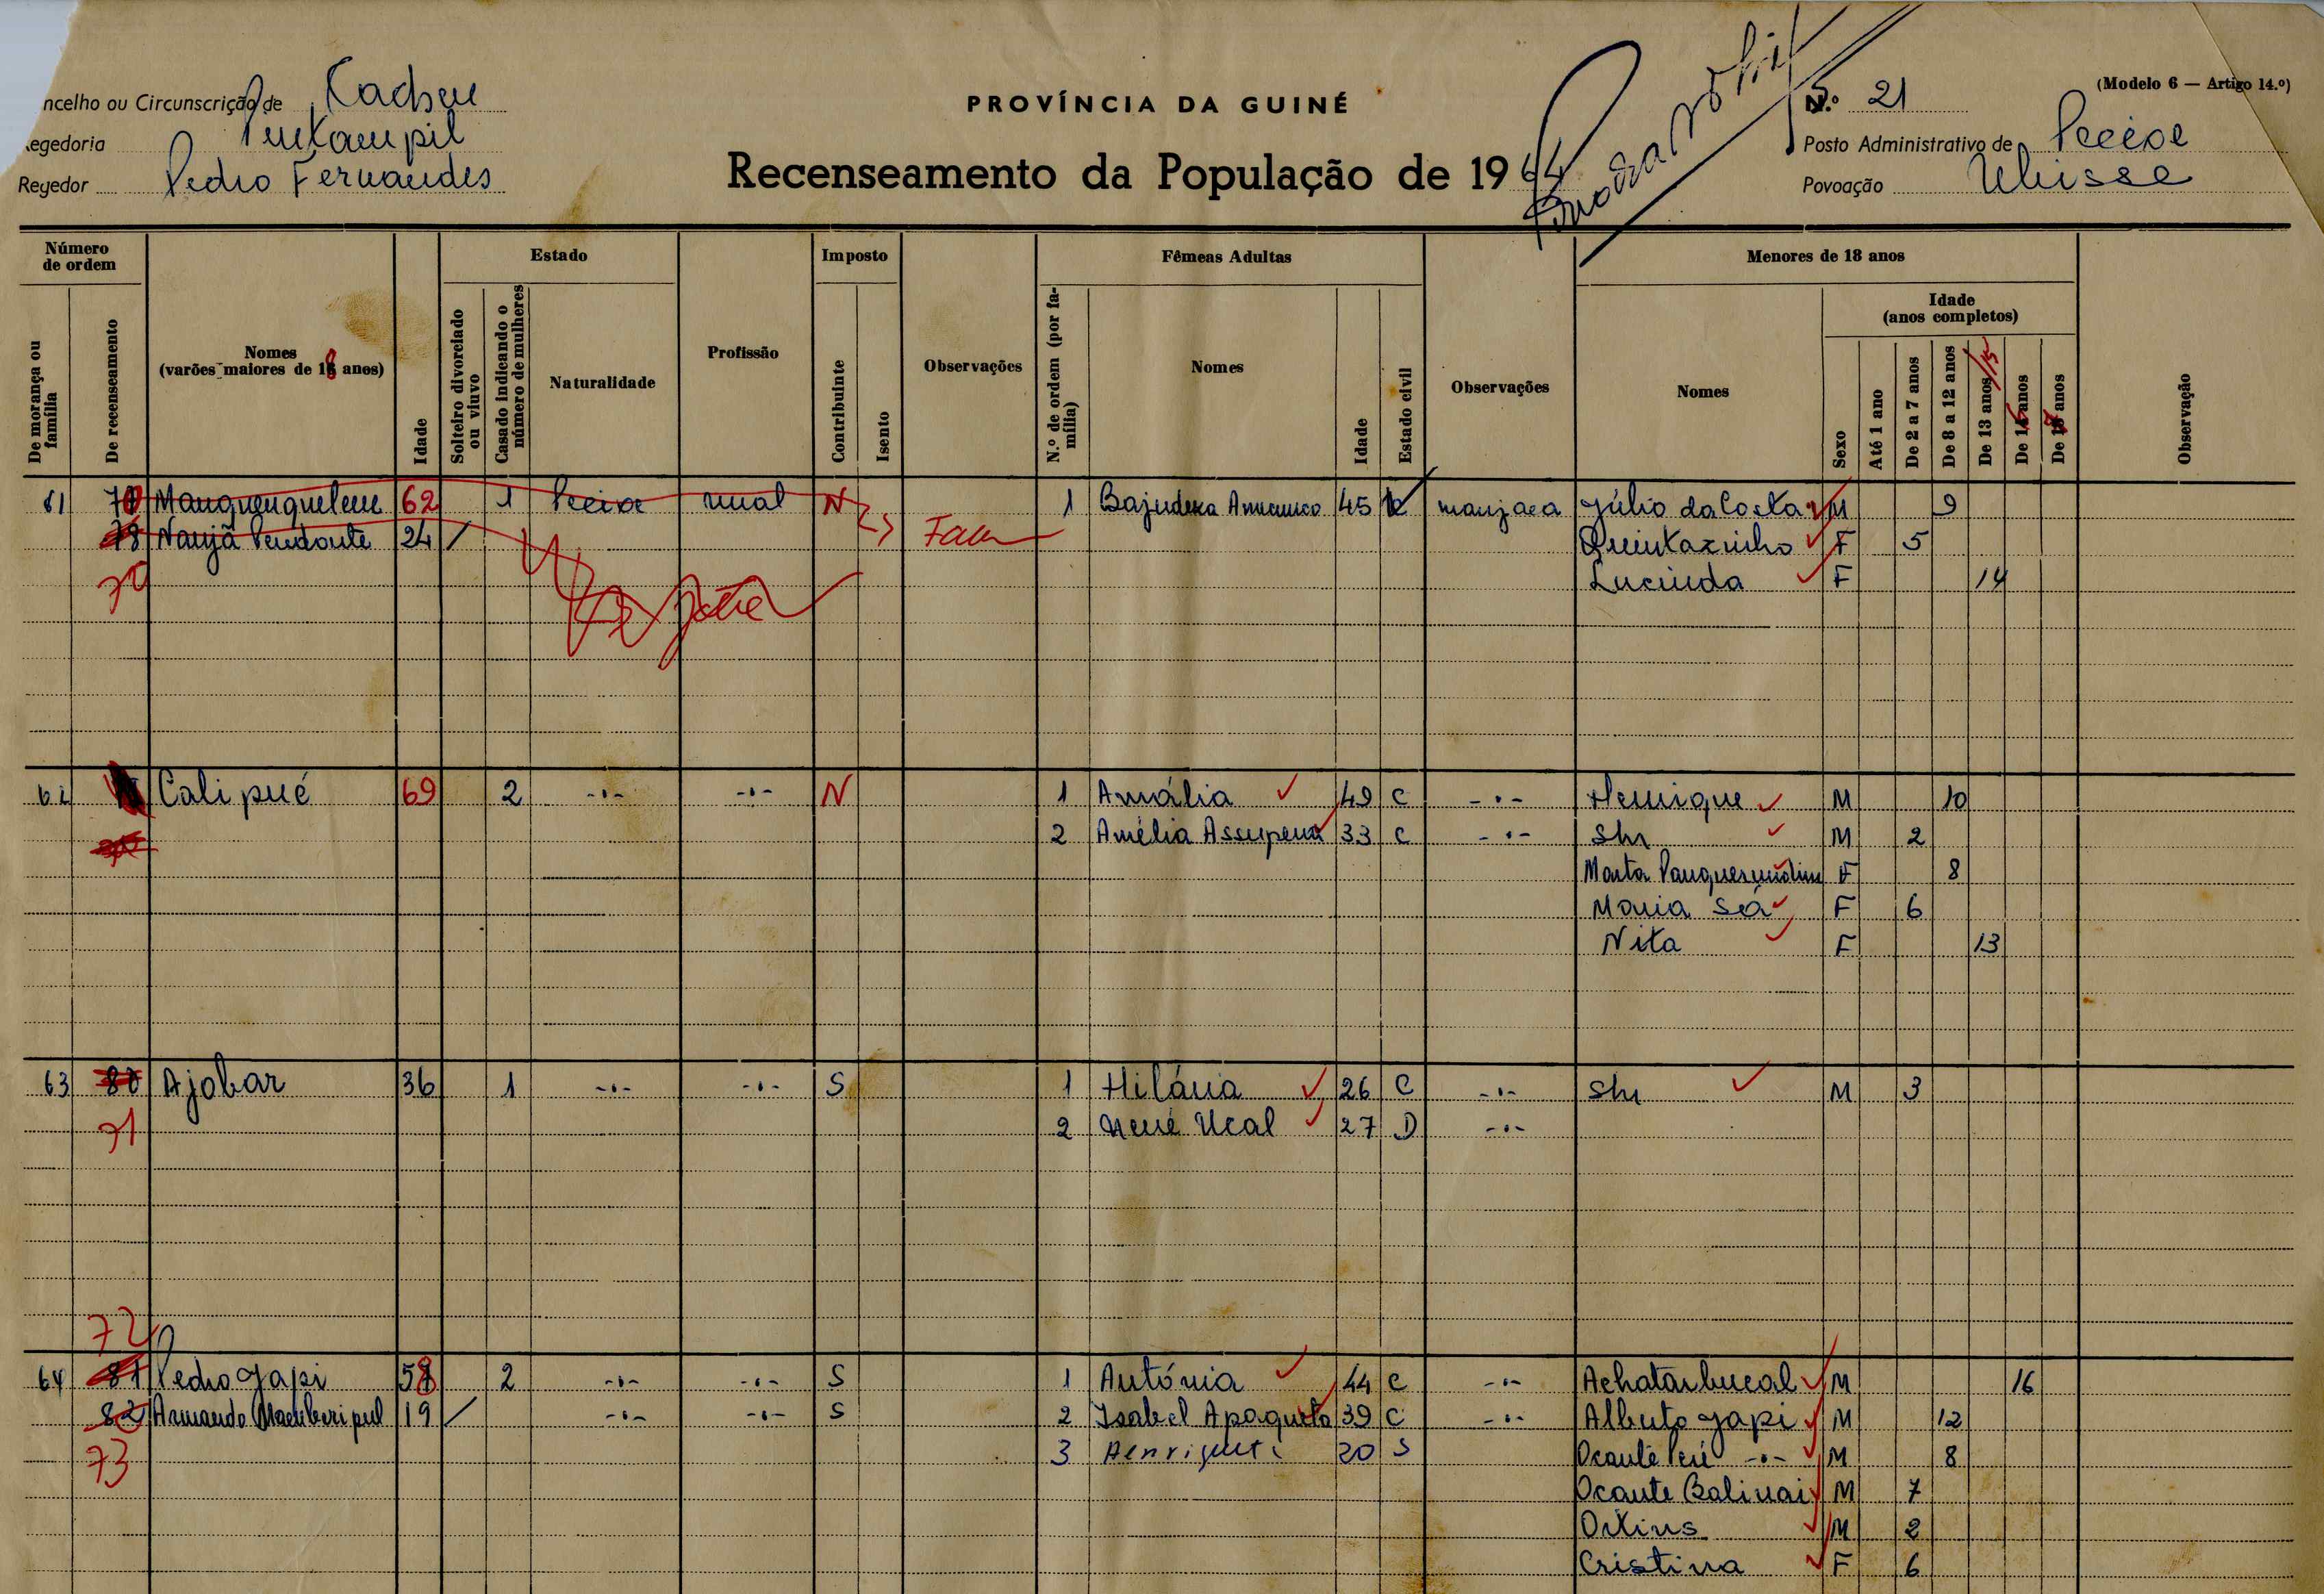 ncelho ou Circunscrição de Kacheu
egedoria
Regedor Pedro Fernandes
PROVÍNCIA DA GUINÉ
Recenseamento da População de 1964
(Modelo 6 — Artigo 14.º)
N.º 21
Posto Administrativo de
Povoação
Número de ordem
De morança ou família
De recenseamento
Nomes
(varões maiores de 18 anos)
Idade
Estado
Solteiro divorciado ou viuvo
Casado indicando o número de mulheres
Naturalidade
Profissão
Imposto
Contribuinte
Isento
Observações
Fêmeas Adultas
N.º de ordem (por família)
Nomes
Idade
Estado civil
Observações
Menores de 18 anos
Nomes
Sexo
Idade
(anos completos)
Até 1 ano
De 2 a 7 anos
De 8 a 12 anos
De 13 anos /15
De anos
De anos
Observação
61 62 1 rural N 1 45 manjaca Júlio da Costa M 9
24 / F 5
70 Lucinda F 14
62 Calipué 69 2 -·- -·- N 1 Amália 49 C -·- Henrique M 10
2 Amélia 33 C -·- Shr M 2
Marta F 8
Maria Sá F 6
Nita F 13
63 80 Ajobar 36 1 -·- -·- S 1 Hilária 26 C -·- Shr M 3
71 2 Nené Ucal 27 D -·-
72
64 81 Pedro Gapi 58 2 -·- -·- S 1 Antónia 44 C -·- M 16
82 Armando 19 / -·- -·- S 2 Isabel Apaqueta 39 C -·- Alberto Gapi M 12
73 3 20 S Ocante -·- M 8
Ocante M 7
M 2
Cristina F 6